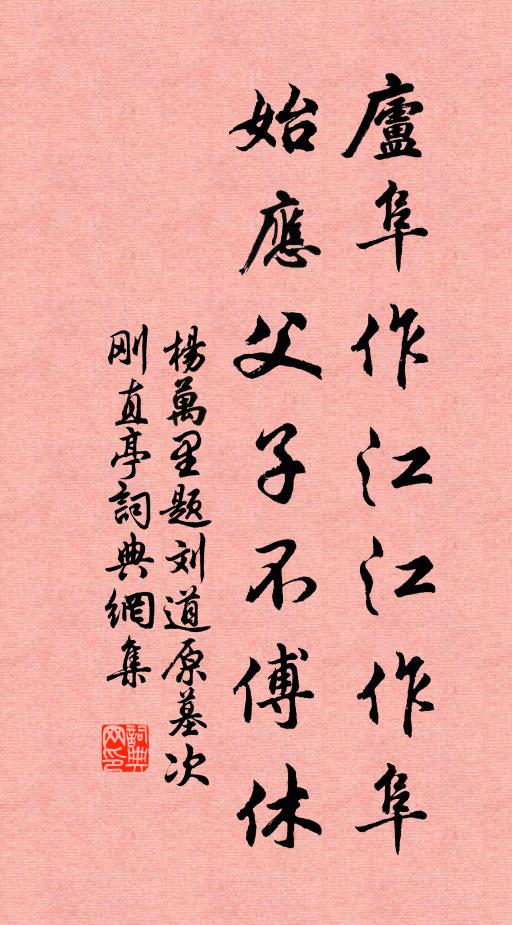 廬阜作江江作阜
始應父子不傅休
楊萬里題刘道原墓次
剛直亭詞典網集
詞典网印